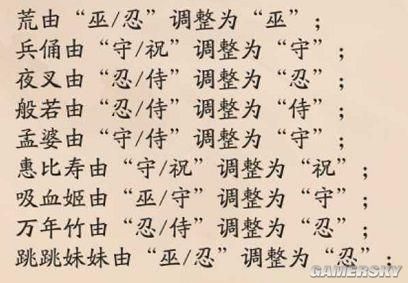 荒由“巫/忍”调整为“巫”；
兵俑由“守/祝”调整为“守”；
夜叉由“忍/侍”调整为“忍”；
般若由“忍/侍”调整为“侍”；
孟婆由“守/侍”调整为“守”；
惠比寿由“守/祝”调整为“祝”；
吸血姬由“巫/守”调整为“守”；
万年竹由“忍/侍”调整为“忍”；
跳跳妹妹由“巫/忍”调整为“忍”；
GAMERSKY